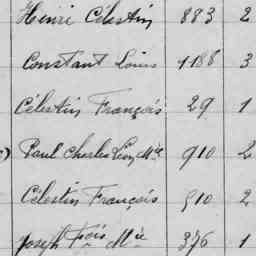 Henri Célestin 883 2
Constant Louis 1188 3
Célestin François 29 1
) Paul Charles Léon Mie 910 2
Célestin François 510 2
Joseph Fois Mie 376 1